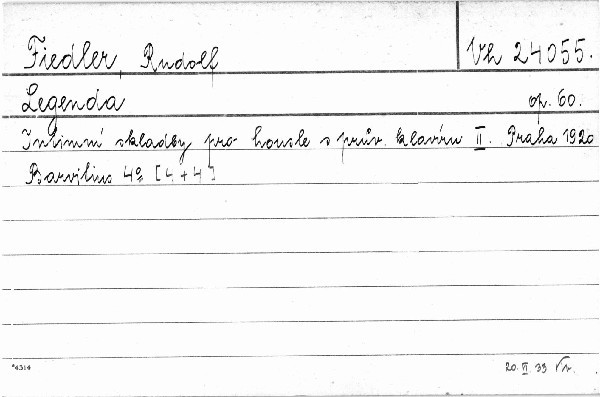 Fiedler, Rudolf
Vh 24055.
Legenda
op. 60.
Intimní skladby pro housle s prův. klavíru II. Praha 1920
Barvitius 4° [4 + 4]
*4314
20. VI 33